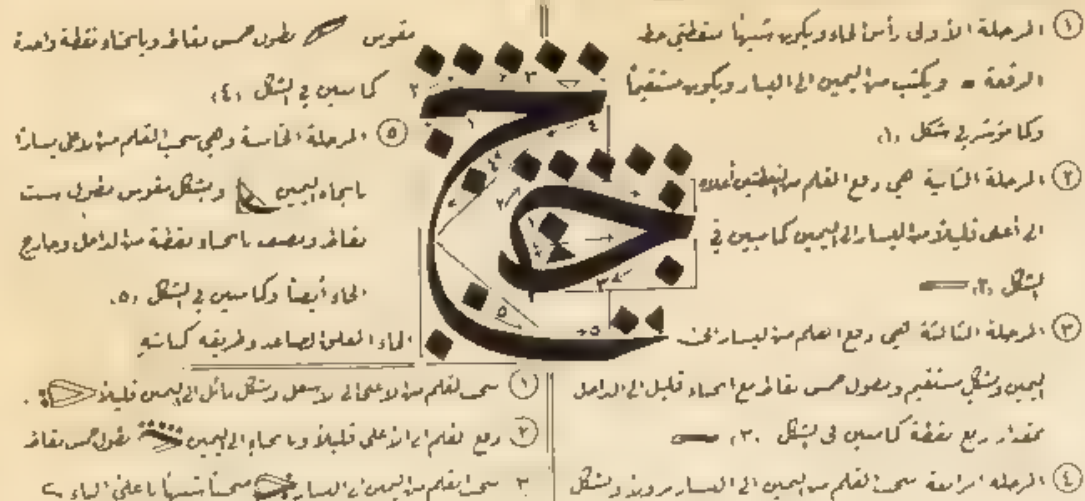 ① المرحلة الأولى رأس الحاء ويكون شبيهاً بنقطتي خط
الرقعة ويكتب من اليمين الى اليسار ويكون مستقيماً
وكما مؤشر في شكل (١)
② المرحلة الثانية هي رفع القلم من النقطتين أعلاه
الى أعلى قليلاً من اليسار الى اليمين كما مبين في
الشكل (٢)
③ المرحلة الثالثة هي رفع القلم من اليسار
اليمين وبشكل مستقيم وبطول خمس نقاط مع انحناء قليل الى الداخل
بمقدار ربع نقطة كما مبين في الشكل (٣)
④ المرحلة الرابعة سحب القلم من اليمين الى اليسار وبشكل
مقوس بطول خمس نقاط وبانحناء نقطة واحدة
كما مبين في الشكل (٤)
⑤ المرحلة الخامسة وهي سحب القلم من الاعلى يساراً
باتجاه اليمين وبشكل مقوس بطول ست
نقاط ونصف بانحناء نقطة من الداخل وخارج
الحاء أيضاً وكما مبين في الشكل (٥)
الحاء الصاعد وطريقة كتابته
① سحب القلم من الاعلى الى الاسفل وبشكل مائل الى اليمين قليلاً
② رفع القلم الى الأعلى قليلاً وباتجاه الى اليمين بطول خمس نقاط
٣ سحب القلم من اليمين الى اليسار سحباً شبيهاً باعلى الباء